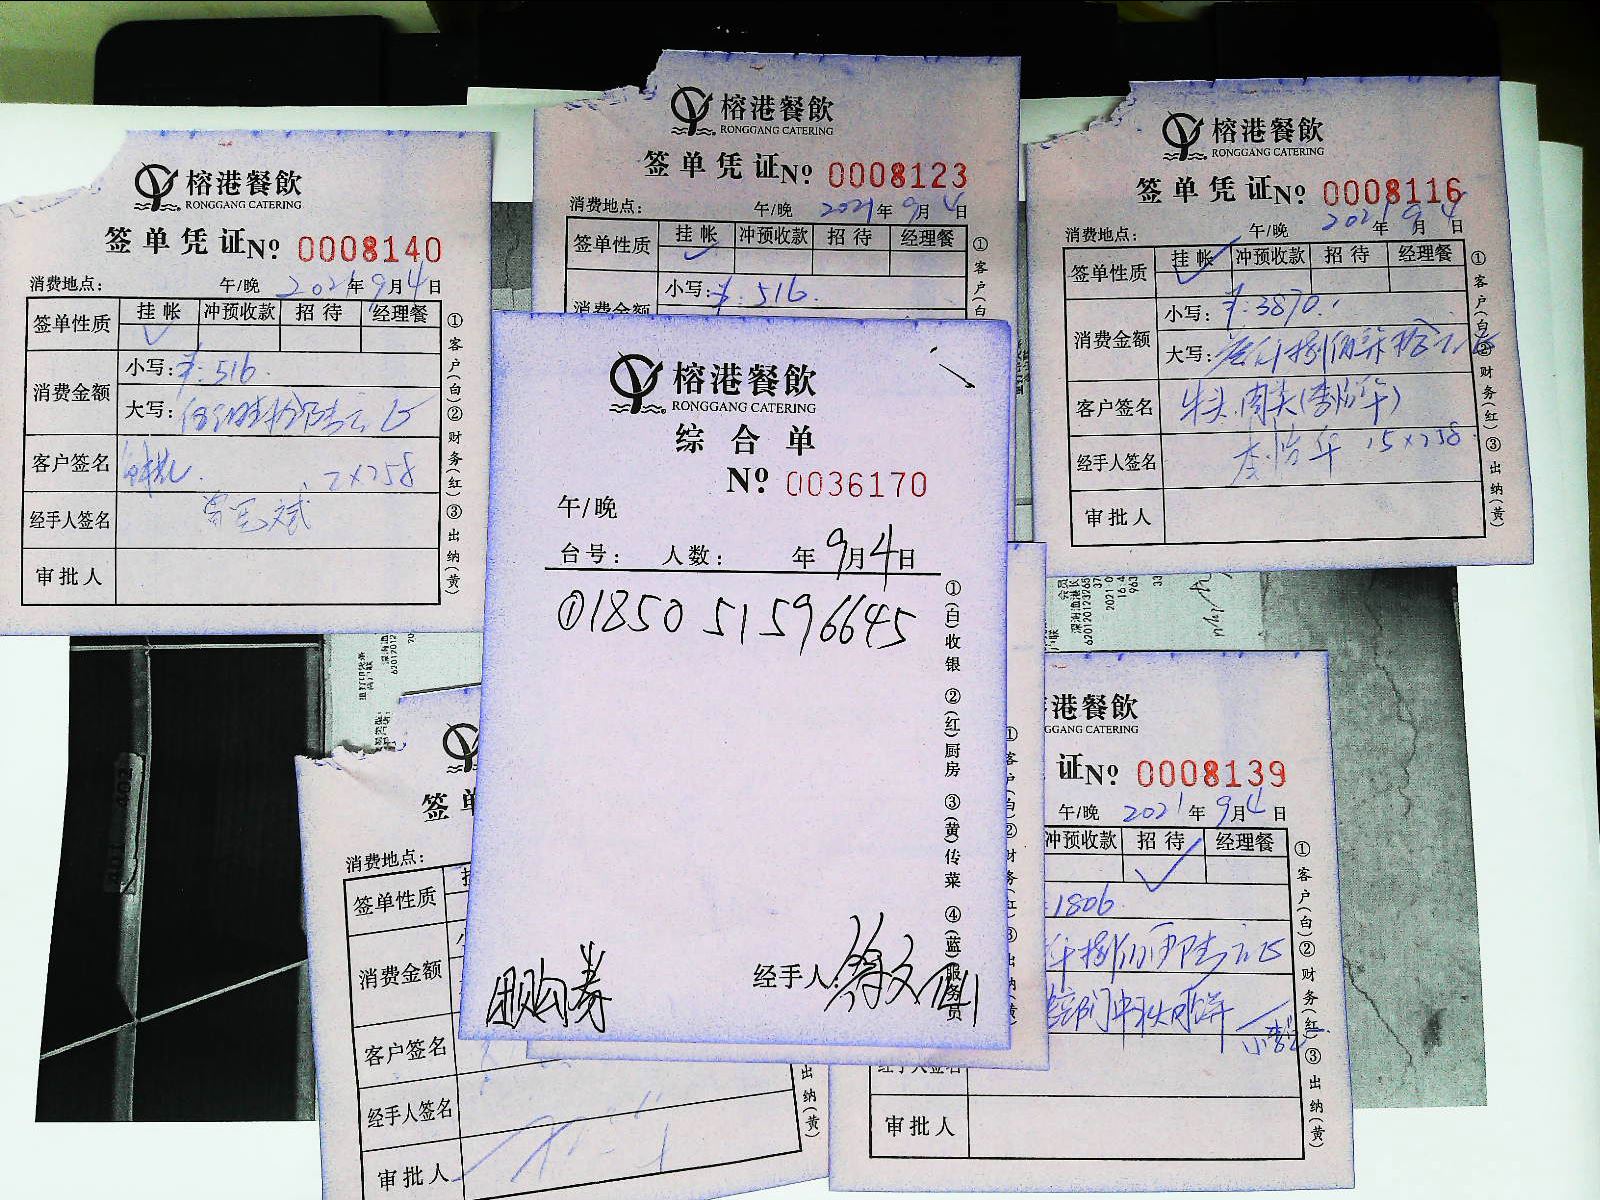 榕港餐飲
RONGGANG CATERING
签单凭证№ 0008140
消费地点： 午/晚 2021年9月4日
签单性质 挂帐 冲预收款 招待 经理餐
消费金额 小写：¥:516.
大写：伍佰壹拾陆元正
客户签名 2×258
经手人签名
审批人
①客户(白)②财务(红)③出纳(黄)
榕港餐飲
RONGGANG CATERING
签单凭证№ 0008123
消费地点： 午/晚 2021年9月4日
签单性质 挂帐 冲预收款 招待 经理餐
小写：¥:516.
消费金额
①客户(白
榕港餐飲
RONGGANG CATERING
签单凭证№ 0008116
消费地点： 午/晚 2021年9月4日
签单性质 挂帐 冲预收款 招待 经理餐
消费金额 小写：¥:3870.
大写：叁仟捌佰柒拾元正
客户签名 牛头.肉类(李怡华)
经手人签名 李怡华 15×258
审批人
①客户(白)②财务(红)③出纳(黄)
榕港餐飲
RONGGANG CATERING
综合单
№ 0036170
午/晚
台号： 人数： 年9月4日
①01850 51596645
团购券 经手人：
①(白)收银 ②(红)厨房 ③(黄)传菜 ④(蓝)服务员
签单
消费地点：
签单性质
消费金额
客户签名
经手人签名
审批人
出纳(黄)
①客户(白)②财务(红)③出纳(黄)
港餐飲
GGANG CATERING
证№ 0008139
午/晚 2021年9月4日
冲预收款 招待 经理餐
:1806.
仟捌佰零陆元正
部门中秋月饼
经手人签名
审批人
①客户(白)②财务(红)③出纳(黄)